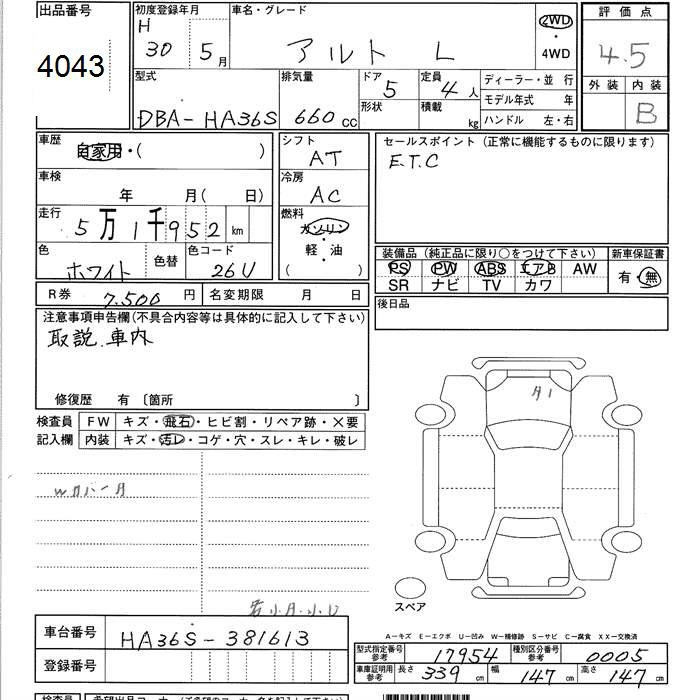 出品番号
4043
初度登録年月
H
30 5月
車名・グレード
アルト L
2WD
・
4WD
評価点
4.5
外装 内装
B
型式
DBA-HA36S
排気量
660cc
ドア
5
形状
定員
4人
積載
kg
ディーラー・並 行
モデル年式 年
ハンドル 左・右
車歴
自家用・( )
車検
年 月( 日)
走行
5万1千952km
色
ホワイト
色替
色コード
26U
シフト
AT
冷房
AC
燃料
ガソリン
・
軽・油
( )
セールスポイント(正常に機能するものに限ります)
E.T.C
装備品(純正品に限り○をつけて下さい)
PS PW ABS エアB AW
SR ナビ TV カワ
新車保証書
有・無
R券 7.500円
名変期限 月 日
後日品
注意事項申告欄(不具合内容等は具体的に記入して下さい)
取説.車内
修復歴 有〔箇所 〕
検査員
記入欄
FW キズ・飛石・ヒビ割・リペア跡・×要
内装 キズ・汚レ・コゲ・穴・スレ・キレ・破レ
WカバーA
A1
スペア
小A.小U
A-キズ E-エクボ U-凹み W-補修跡 S-サビ C-腐食 XX-交換済
車台番号 HA36S-381613
登録番号
型式指定番号
参考
17954
種別区分番号
参考
0005
車庫証明用
参考
長さ 339cm 幅 147cm 高さ 147cm
検査員 希望出品コーナー(ご希望のコーナー名を記入